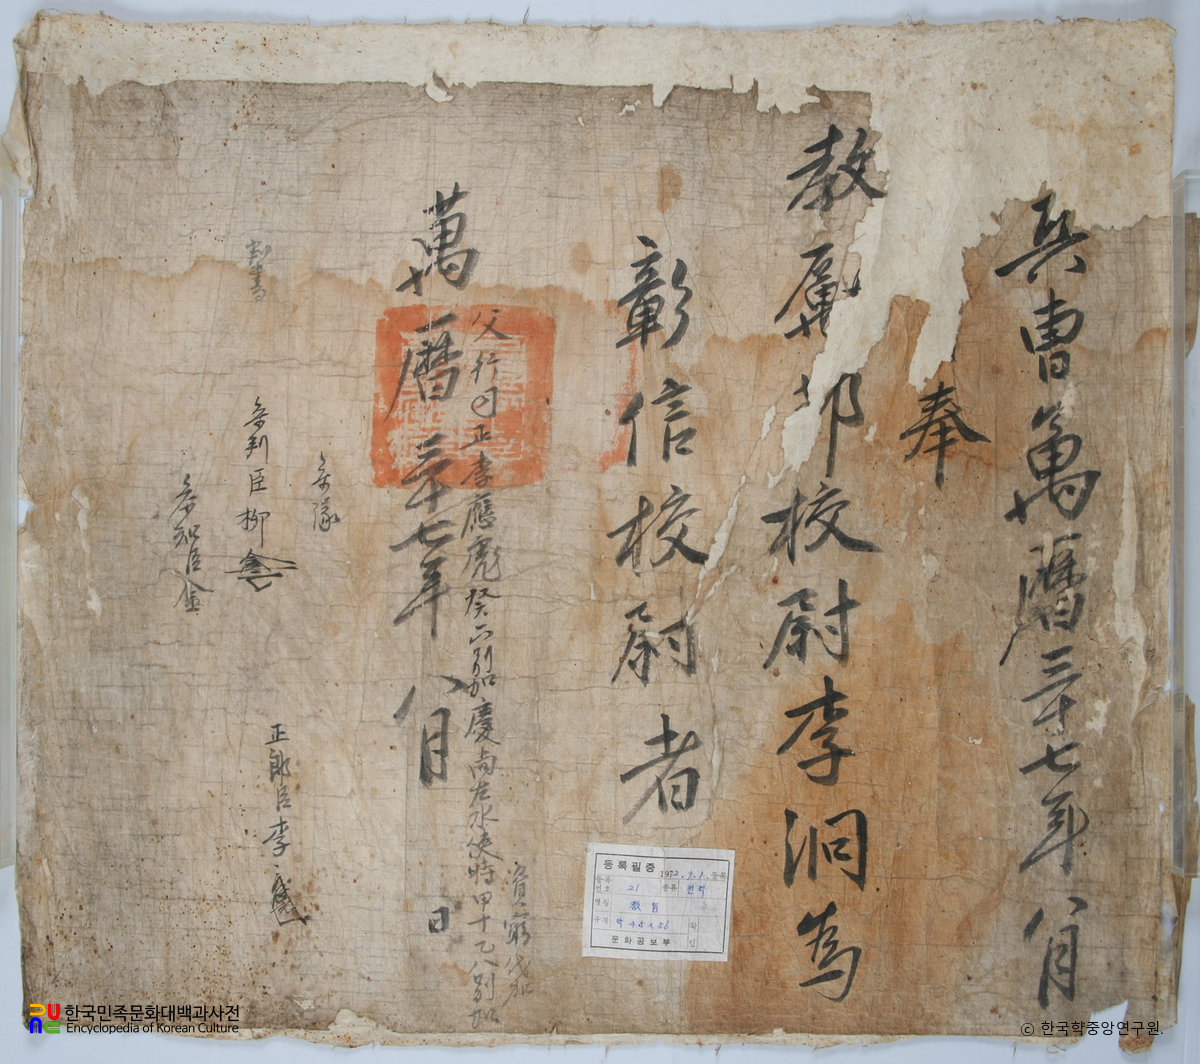 兵曹萬曆三十七年八月
奉
教厲節校尉李泂爲
彰信校尉者
萬曆三十七年八月 日
父行司正李應彪癸六別加慶尚左水使時甲十乙八別加
資窮代加
判書
參判臣柳
參知臣金
正郎臣李
등록필증
1972.9.1. 등록
등록번호 21 종류 전적
명칭 敎旨
규격
문화공보부
한국민족문화대백과사전
Encyclopedia of Korean Culture
© 한국학중앙연구원.